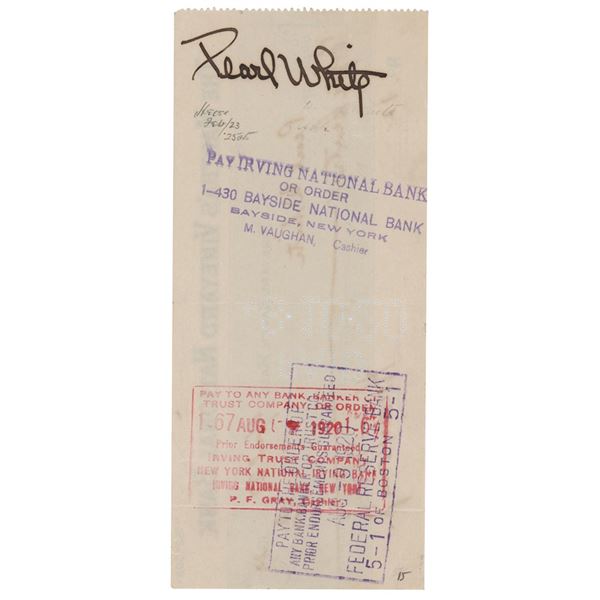 Pearl White
PAY IRVING NATIONAL BANK
OR ORDER
1-430 BAYSIDE NATIONAL BANK
BAYSIDE, NEW YORK
M. VAUGHAN, Cashier
PAY TO ANY BANK, BANKER
TRUST COMPANY OR ORDER
1-67 AUG 1920 1-67
Prior Endorsements Guaranteed
IRVING TRUST COMPANY
NEW YORK NATIONAL IRVING BANK
IRVING NATIONAL BANK, NEW YORK
P. F. GRAY, Cashier
PAY TO THE ORDER OF
ANY BANK, BANKER OR TRUST CO.
PRIOR ENDORSEMENTS GUARANTEED
AUG
FEDERAL RESERVE BANK
5-1 OF BOSTON 5-1
15